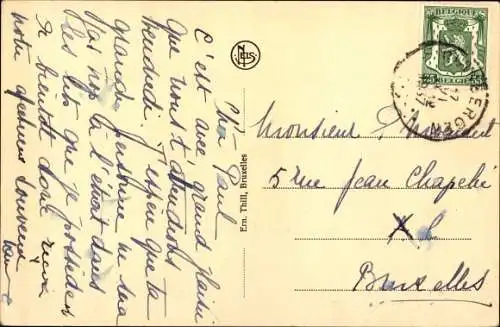 Cher Paul
C'est avec grand plaisir
que nous t'attendrons
Vendredi. J'espère que ta
grande personne ne sera
pas trop à l'étroit dans
les lits que je possède.
A bientôt donc
notre
souvenir
NELS
Ern. Thill, Bruxelles
BELGIQUE
BELGIË
35 35
17
BERGEN
Monsieur
5 rue Jean Chapelié
XL
Bruxelles